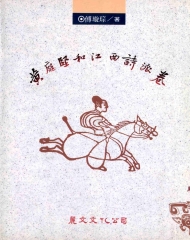 ◎傅璇琮／著
黃庭堅和江西詩派卷
麗文文化公司